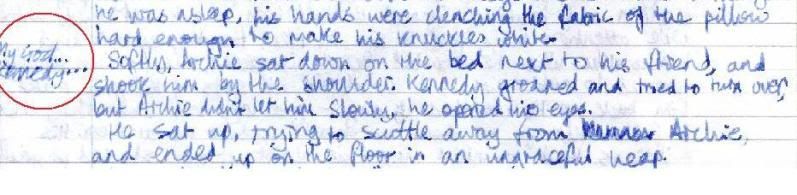 he was asleep, his hands were clenching the fabric of the pillow
hard enough to make his knuckles white.
My God...
Kennedy...
Softly, Archie sat down on the bed next to his friend, and
shook him by the shoulder. Kennedy groaned and tried to turn over,
but Archie didn't let him. Slowly, he opened his eyes.
He sat up, trying to scuttle away from Archie,
and ended up on the floor in an ungraceful heap.